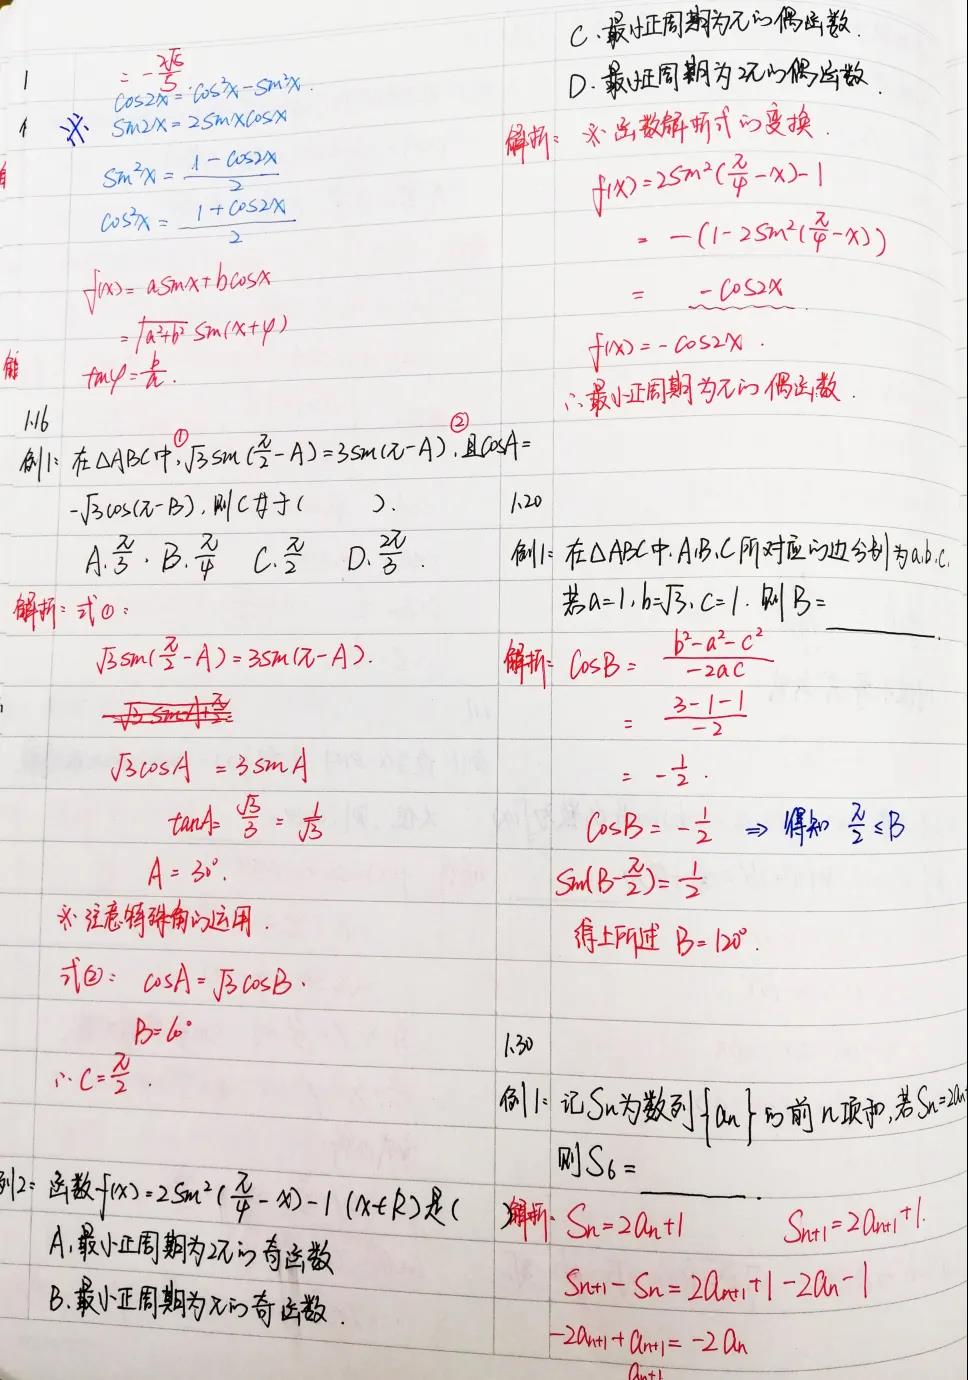 = -2√5/5
cos2x = cos²x - sin²x.
※ sin2x = 2sinxcosx
sin²x = (1 - cos2x)/2
cos²x = (1 + cos2x)/2
f(x) = asinx + bcosx
= √(a²+b²) sin(x+φ)
tanφ = b/a.
1.16
例1: 在△ABC中, ①√3sin(π/2 - A) = 3sin(π - A), ②且cosA =
-√3cos(π - B), 则C等于( ).
A. π/3 . B. π/4 C. π/2 D. 2π/3 .
解析: 式①:
√3sin(π/2 - A) = 3sin(π - A).
√3cosA = 3sinA
tanA = √3/3 = 1/√3
A = 30°.
※注意特殊角的运用.
式②: cosA = √3cosB.
B = 60°
∴ C = π/2 .
例2: 函数f(x) = 2sin²(π/4 - x) - 1 (x∈R)是( )
A. 最小正周期为2π的奇函数
B. 最小正周期为π的奇函数.
C. 最小正周期为π的偶函数.
D. 最小正周期为2π的偶函数.
解析: ※函数解析式的变换.
f(x) = 2sin²(π/4 - x) - 1
= -(1 - 2sin²(π/4 - x))
= -cos2x
f(x) = -cos2x .
∴ 最小正周期为π的偶函数.
1.20
例1: 在△ABC中, A.B.C所对应的边分别为a.b.c,
若a=1, b=√3, c=1. 则B = ______.
解析: cosB = (b² - a² - c²)/(-2ac)
= (3 - 1 - 1)/(-2)
= -1/2 .
cosB = -1/2 ⇒ 得知 π/2 ≤ B
sin(B - π/2) = 1/2
得上所述 B = 120°.
1.30
例1: 记Sn为数列{an}的前n项和, 若Sn=2an
则S6 = ______.
解析: Sn = 2an+1 Sn+1 = 2an+1+1.
Sn+1 - Sn = 2an+1 + 1 - 2an - 1
-2an+1 + an+1 = -2an
an+1